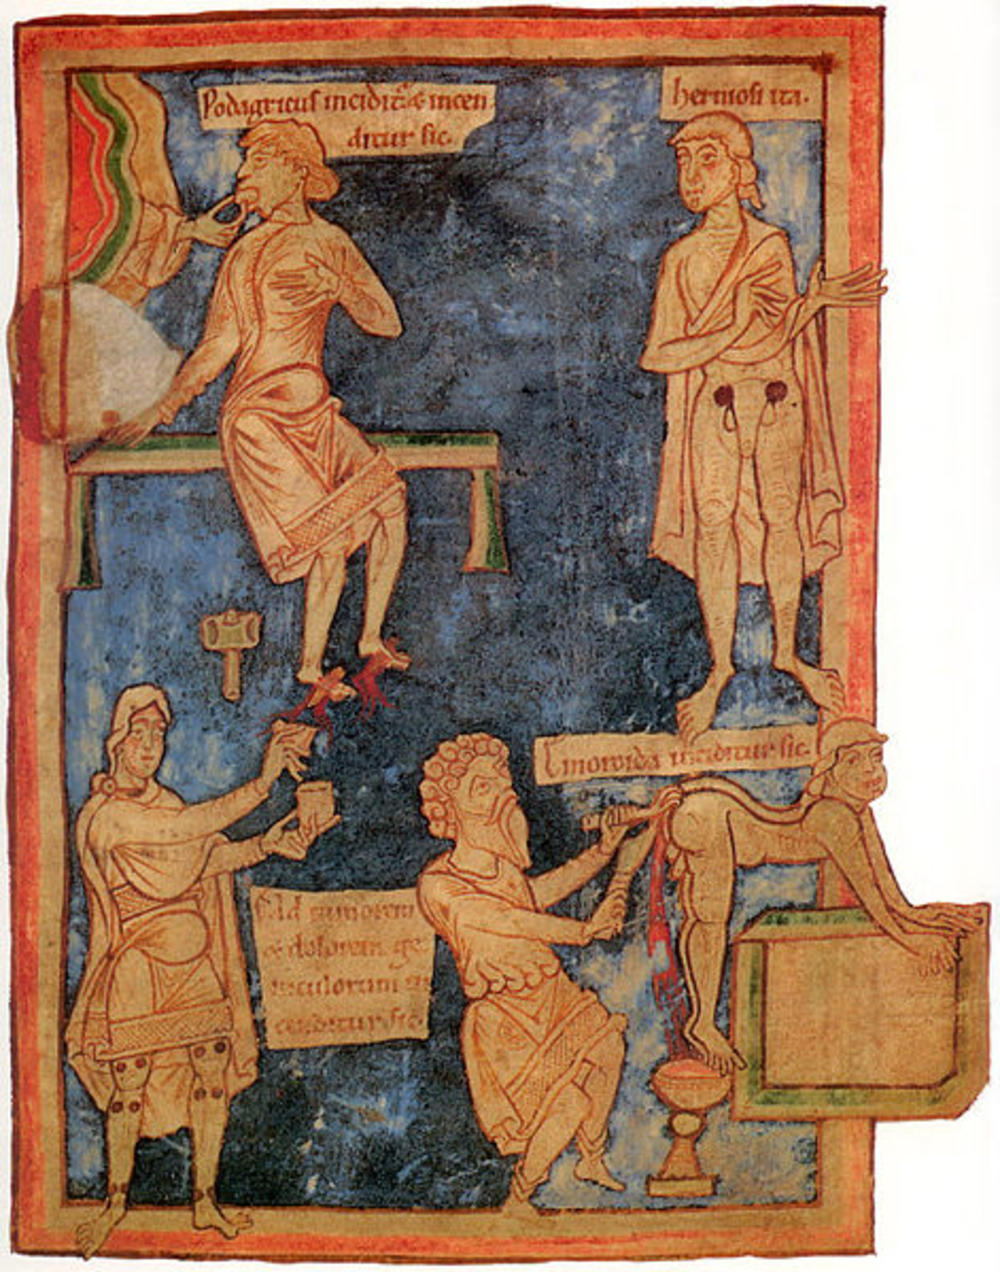 Podagricus incidit᷑ & incen-
ditur sic.
hermosi ita.
Emoroida inciditur sic.
& dolorem ge-
niculorum in
cenditur sic.